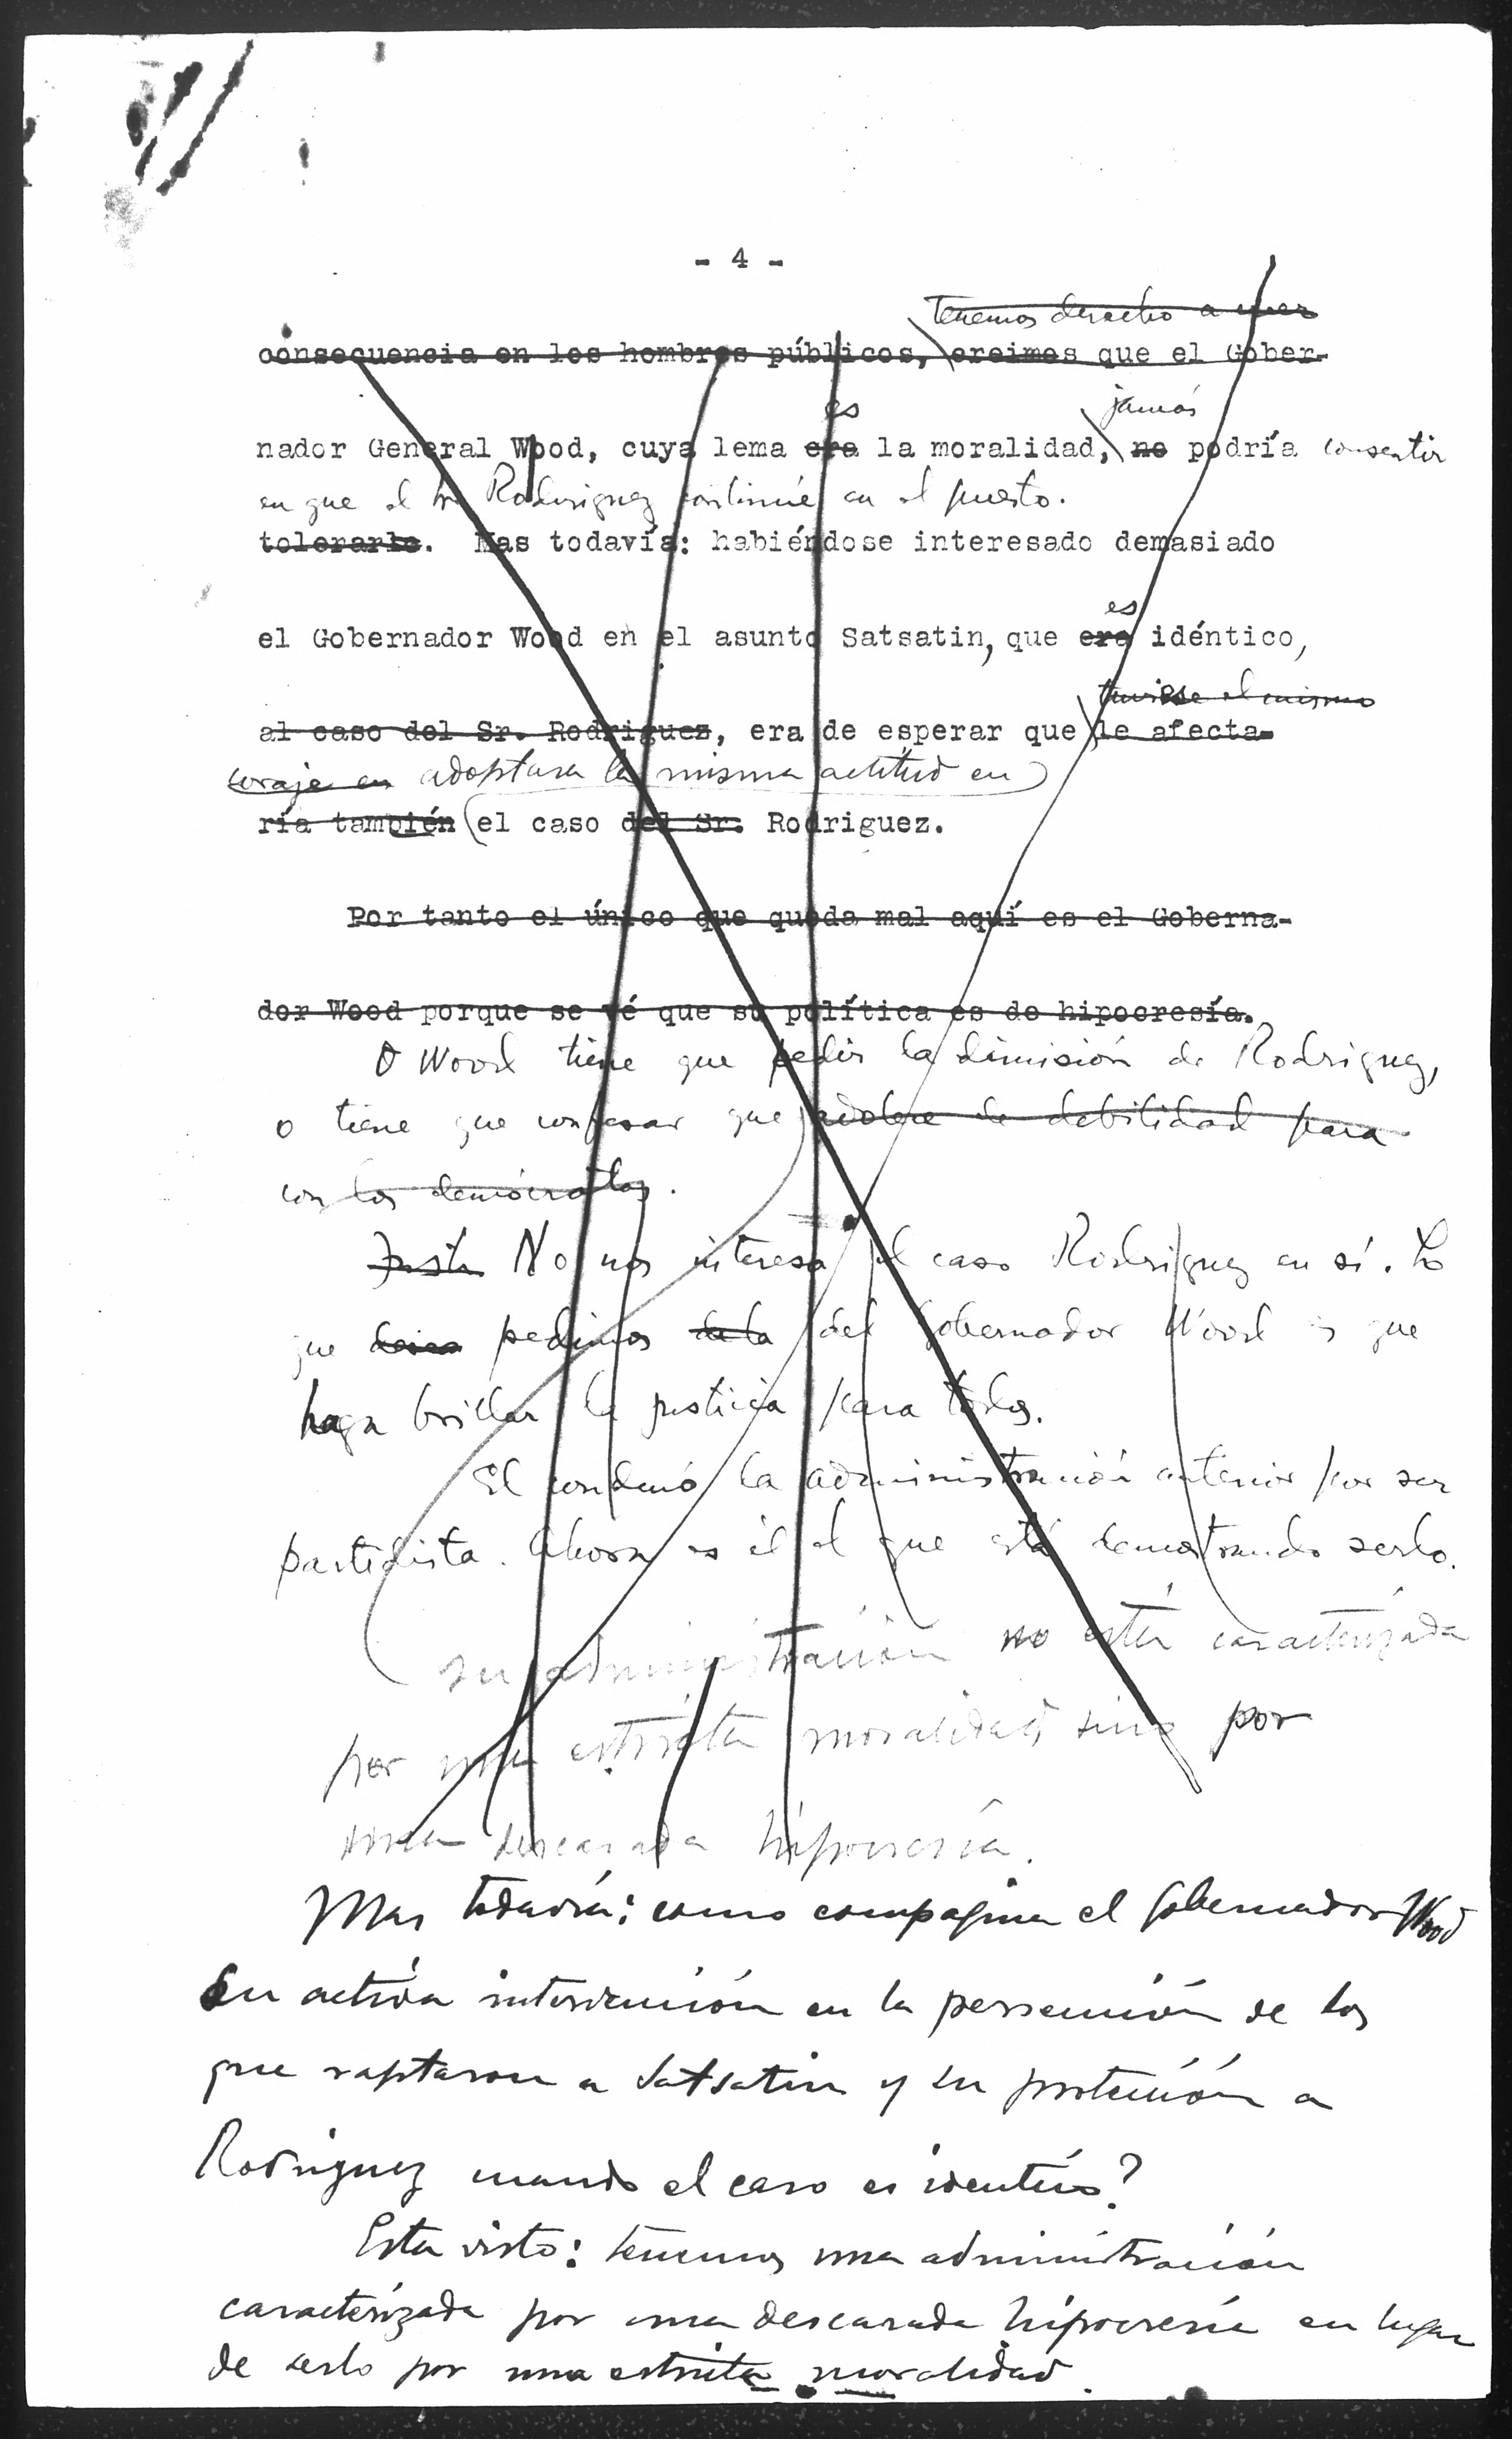 - 4 -
tenemos derecho a creer
consecuencia en los hombres públicos, creimos que el Gober-
es jamás
nador General Wood, cuya lema era la moralidad, no podría consentir
en que el Sr. Rodriguez continúe en el puesto.
tolerarlo. Mas todavía: habiéndose interesado demasiado
es
el Gobernador Wood en el asunto Satsatin, que era idéntico,
tuviese el mismo
al caso del Sr. Rodriguez, era de esperar que le afecta-
coraje en adoptara la misma actitud en
ría también el caso del Sr. Rodriguez.
Por tanto el único que queda mal aquí es el Goberna-
dor Wood porque se vé que su política es de hipocresía.
O Wood tiene que pedir la dimisión de Rodriguez,
o tiene que confesar que adolece de debilidad para
con los demócratas.
No nos interesa el caso Rodriguez en sí. Lo
que desea pedimos de la del Gobernador Wood es que
haga brillar la justicia para todos.
El condenó la administración anterior por ser
partidista. Ahora es él el que está demostrando serlo.
su administración no está caracterizada
por una estricta moralidad sino por
una descarada hipocresía.
Mas todavía: como compagina el Gobernador Wood
su activa intervención en la persecución de los
que raptaron a Satsatin y su protección a
Rodriguez cuando el caso es identico?
Esta visto: tenemos una administración
caracterizada por una descarada hipocresía en lugar
de serlo por una estricta moralidad.